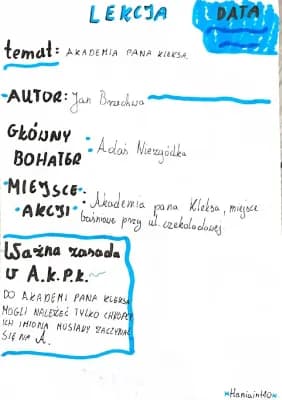 LEKCJA DATA
temat: AKADEMIA PANA KLEKSA.
-AUTOR: Jan Brzechwa
GŁÓWNY
BOHATER • Adaś Niezgódka
-MIEJSCE-
AKCJI • Akademia pana Kleksa, miejsce
baśniowe przy ul. czekoladowej.
Ważna zasada
W A.k.P.k.
DO AKADEMI PANA KLEKSA
MOGLI NALEŻEĆ TYLKO CHŁOPCY
ICH IMIONA MUSIAŁY ZACZYNAĆ
SIĘ NA A.
*Haniaint40*